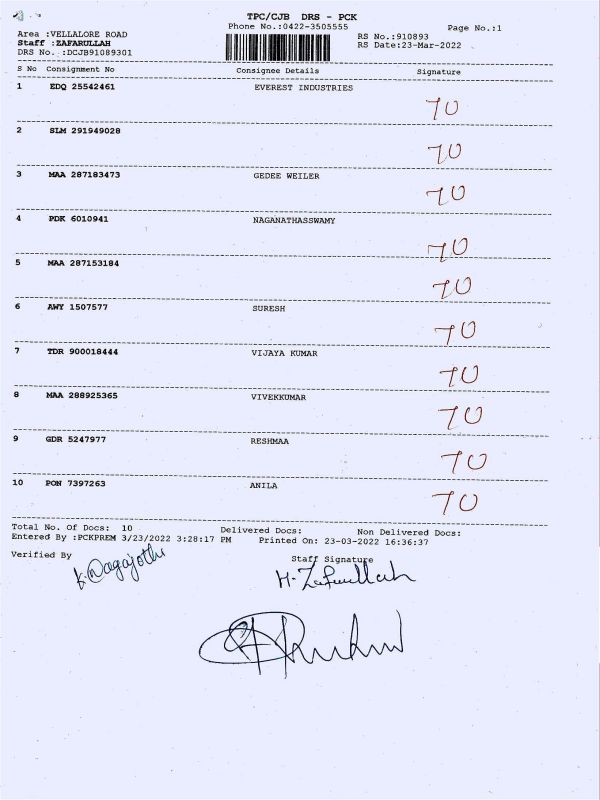 TPC/CJB DRS - PCK
Phone No.:0422-3505555 Page No.:1
Area :VELLALORE ROAD RS No.:910893
Staff :ZAFARULLAH RS Date:23-Mar-2022
DRS No. :DCJB91089301
S No Consignment No Consignee Details Signature
1 EDQ 25542461 EVEREST INDUSTRIES
70
2 SLM 291949028
70
3 MAA 287183473 GEDEE WEILER
70
4 PDK 6010941 NAGANATHASSWAMY
70
5 MAA 287153184
70
6 AWY 1507577 SURESH
70
7 TDR 900018444 VIJAYA KUMAR
70
8 MAA 288925365 VIVEKKUMAR
70
9 GDR 5247977 RESHMAA
70
10 PON 7397263 ANILA
70
Total No. Of Docs: 10 Delivered Docs: Non Delivered Docs:
Entered By :PCKPREM 3/23/2022 3:28:17 PM Printed On: 23-03-2022 16:36:37
Verified By Staff Signature
K. Nagajothi H. Zafarullah